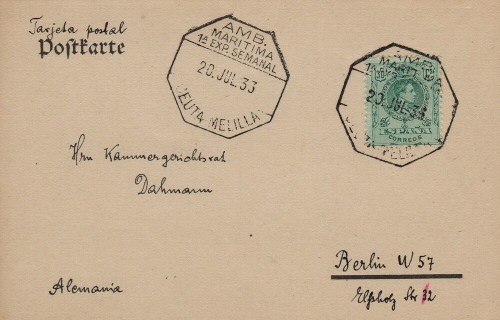 Tarjeta postal
Postkarte
AMB.
MARITIMA
1ª EXP. SEMANAL
20 JUL 33
CEUTA-MELILLA
20 JUL 33
CORREOS
Hrn Kammergerichtsrat
Dahmann
Berlin W 57
Elßholz Str 32
Alemania